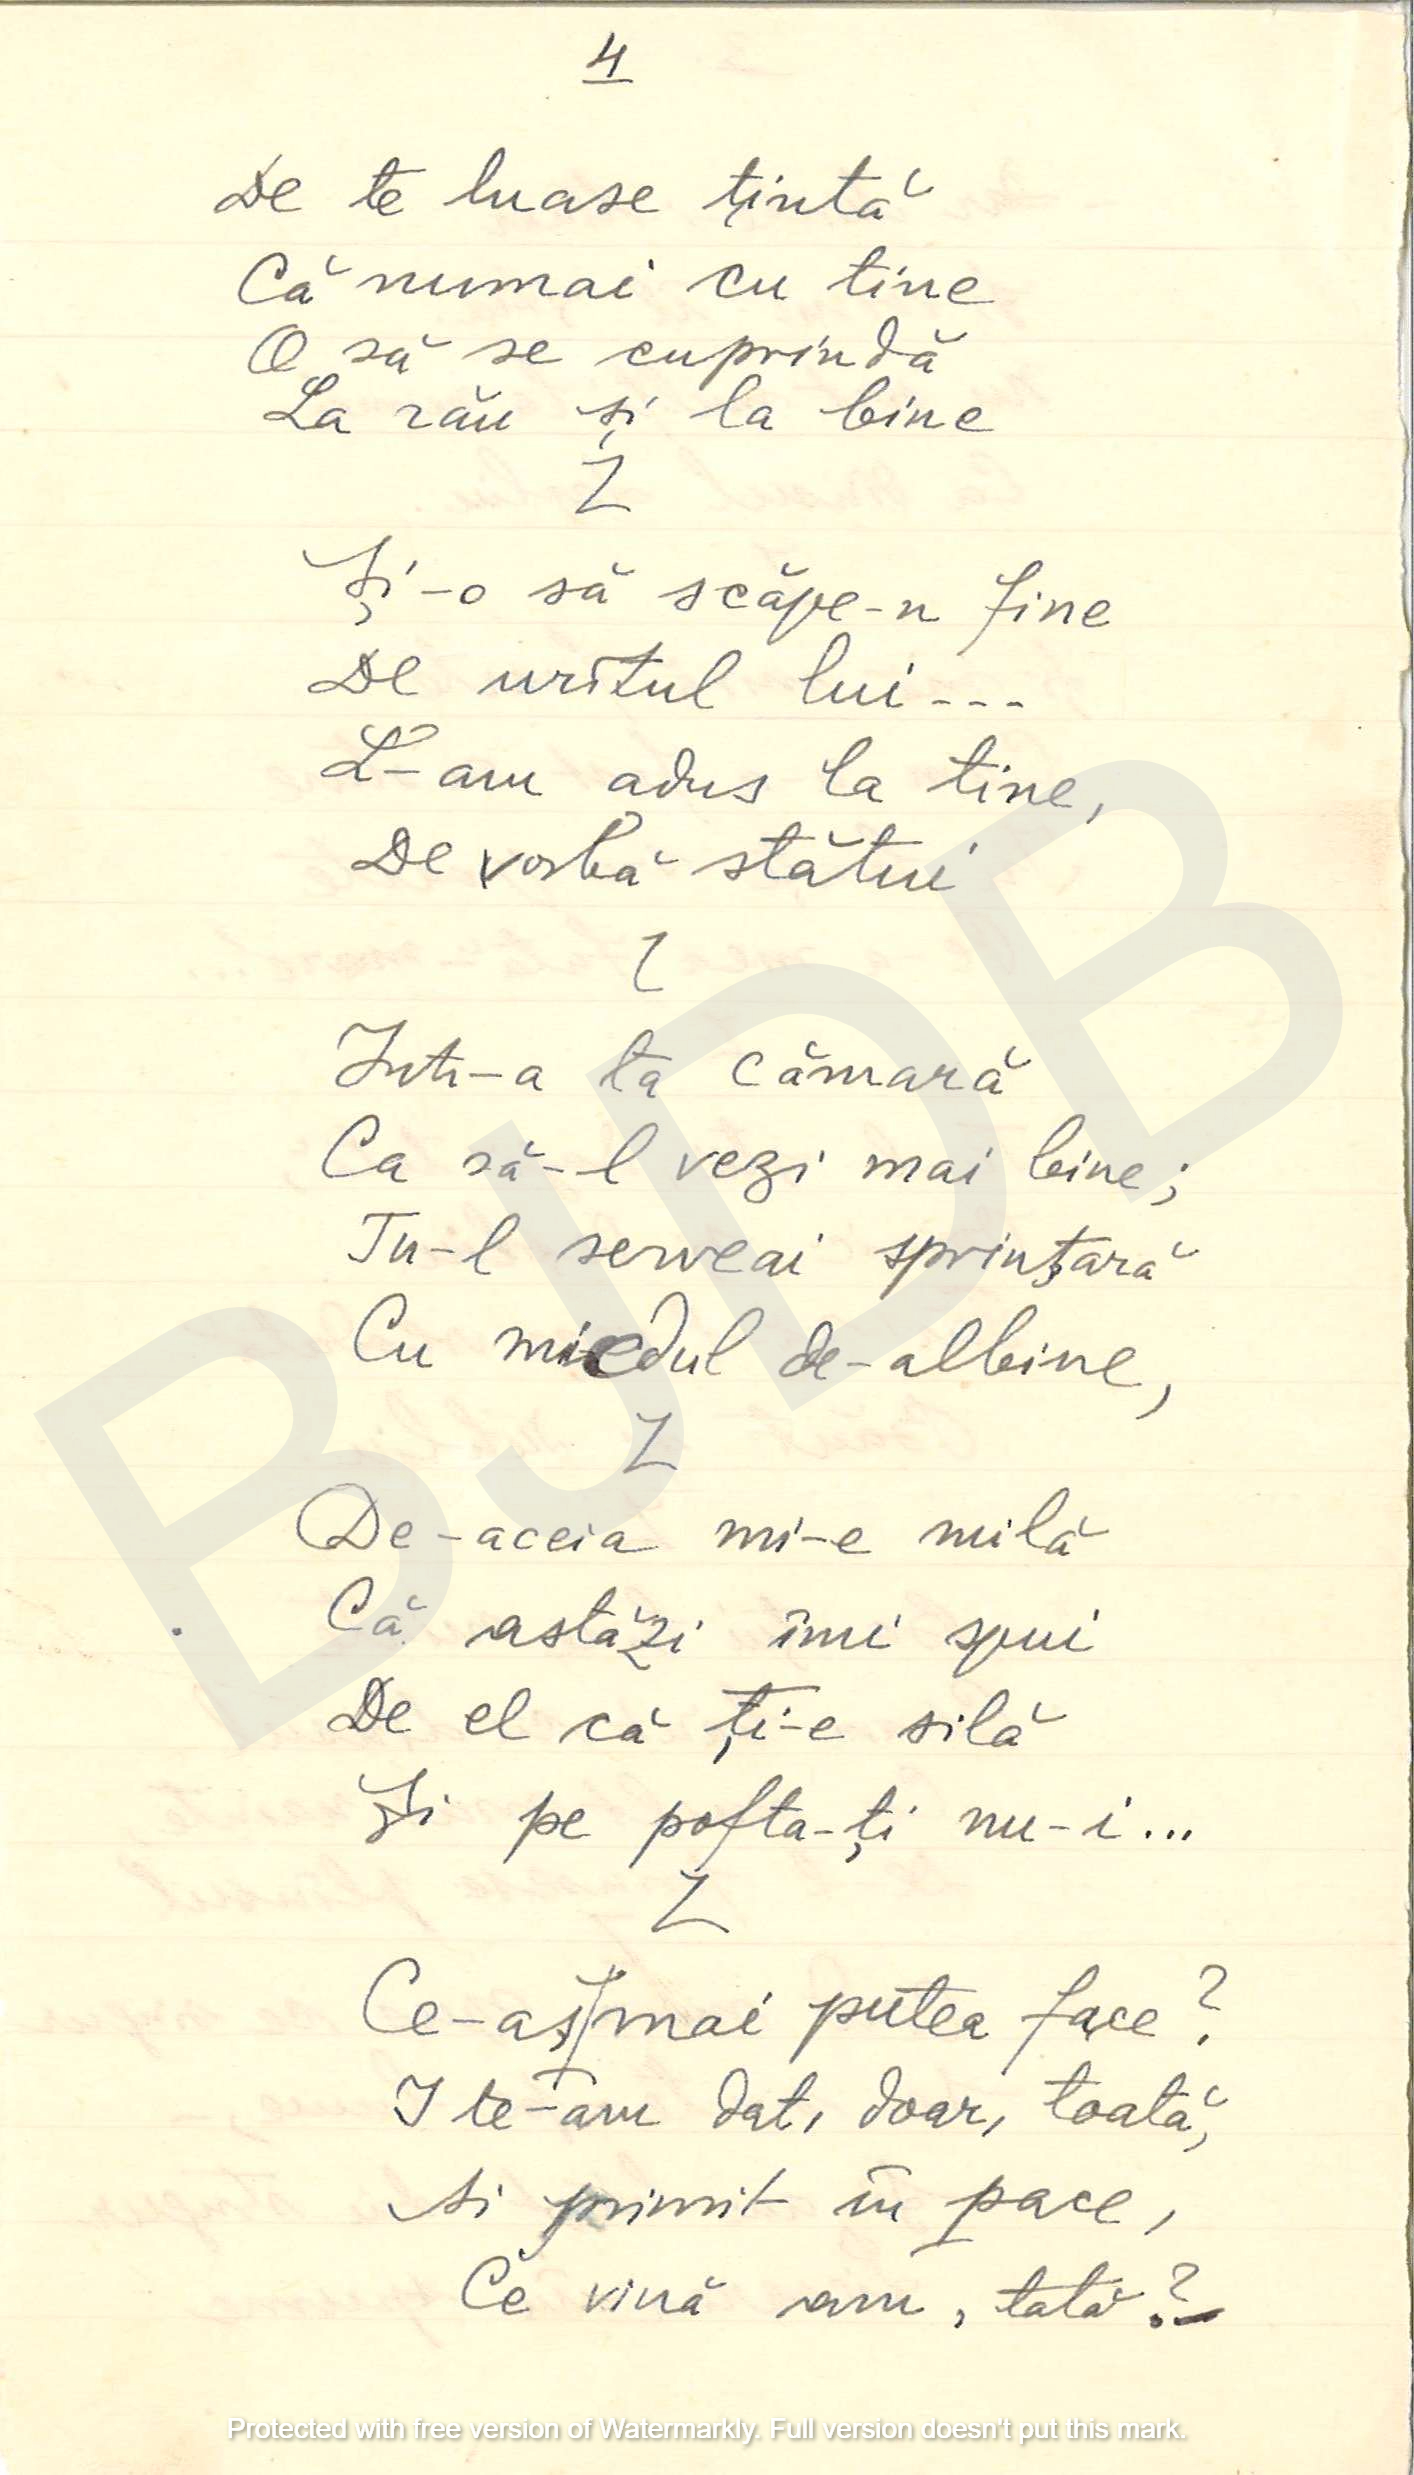 4
De te luase țintă
Că numai cu tine
O să se cuprindă
La rău și la bine
Z
Și-o să scăpe-n fine
De urîtul lui---
L-am adus la tine,
De vorbă stătui
Z
Intr-a ta cămară
Ca să-l vezi mai bine;
Tu-l serveai sprințară
Cu miedul de-albine,
Z
De-aceia mi-e milă
Că astăzi îmi spui
De el că ți-e silă
Și pe pofta-ți nu-i...
Z
Ce-aș mai putea face?
I te-am dat, doar, toată,
Ai primit în pace,
Ce vină am, tată?
BJDB
Protected with free version of Watermarkly. Full version doesn't put this mark.